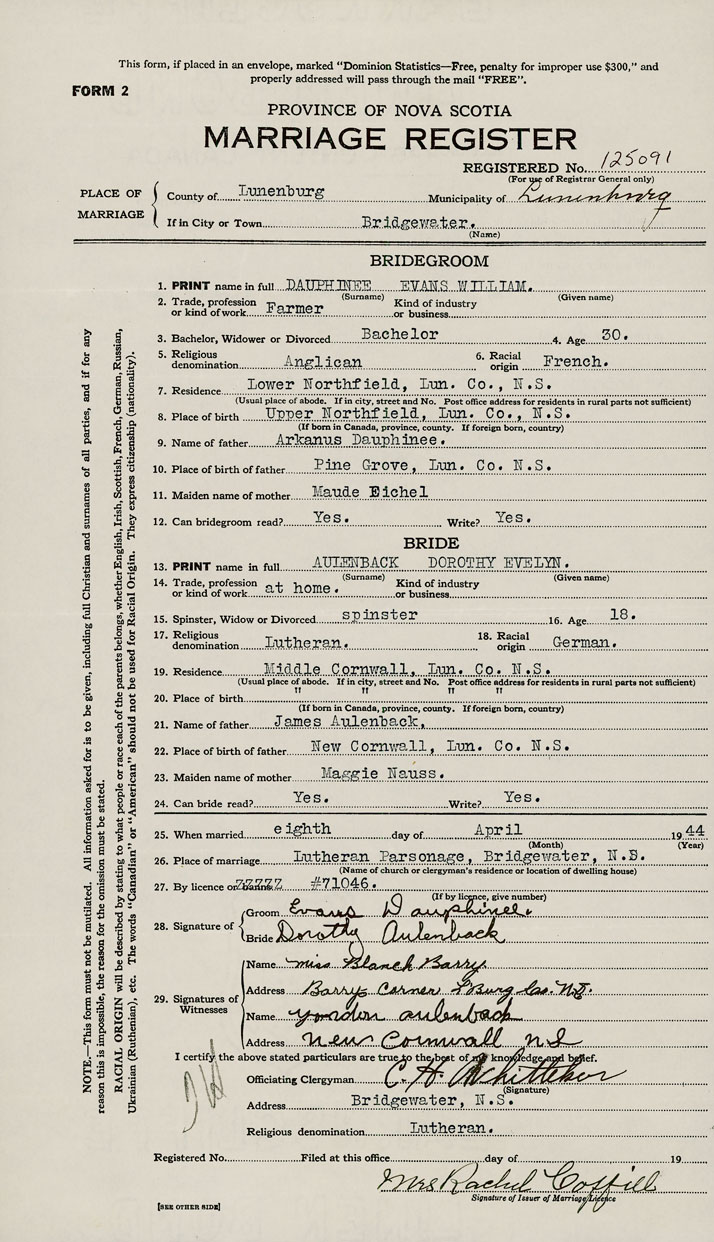 This form, if placed in an envelope, marked “Dominion Statistics—Free, penalty for improper use $300,” and
properly addressed will pass through the mail “FREE”.
FORM 2
PROVINCE OF NOVA SCOTIA
MARRIAGE REGISTER
REGISTERED No. 125091
(For use of Registrar General only)
PLACE OF MARRIAGE
County of Lunenburg Municipality of Lunenburg
If in City or Town Bridgewater.
(Name)
BRIDEGROOM
1. PRINT name in full DAUPHINEE EVANS WILLIAM.
(Surname) (Given name)
2. Trade, profession or kind of work Farmer Kind of industry or business
3. Bachelor, Widower or Divorced Bachelor 4. Age 30.
5. Religious denomination Anglican 6. Racial origin French.
7. Residence Lower Northfield, Lun. Co., N.S.
(Usual place of abode. If in city, street and No. Post office address for residents in rural parts not sufficient)
8. Place of birth Upper Northfield, Lun. Co., N.S.
(If born in Canada, province, county. If foreign born, country)
9. Name of father Arkanus Dauphinee.
10. Place of birth of father Pine Grove, Lun. Co. N.S.
11. Maiden name of mother Maude Eichel
12. Can bridegroom read? Yes. Write? Yes.
BRIDE
13. PRINT name in full AULENBACK DOROTHY EVELYN.
(Surname) (Given name)
14. Trade, profession or kind of work at home. Kind of industry or business
15. Spinster, Widow or Divorced spinster 16. Age 18.
17. Religious denomination Lutheran. 18. Racial origin German.
19. Residence Middle Cornwall, Lun. Co. N.S.
(Usual place of abode. If in city, street and No. Post office address for residents in rural parts not sufficient)
20. Place of birth " " " "
(If born in Canada, province, county. If foreign born, country)
21. Name of father James Aulenback,
22. Place of birth of father New Cornwall, Lun. Co. N.S.
23. Maiden name of mother Maggie Nauss.
24. Can bride read? Yes. Write? Yes.
25. When married eighth day of April 1944
(Month) (Year)
26. Place of marriage Lutheran Parsonage, Bridgewater, N.S.
(Name of church or clergyman's residence or location of dwelling house)
27. By licence or banns #71046.
(If by licence, give number)
28. Signature of
Groom Evans Dauphinee.
Bride Dorothy Aulenback
29. Signatures of Witnesses
Name Miss Blanch Barry
Address Barry Corner L'Burg Co. N.S.
Name aulenback
Address New Cornwall N S
I certify the above stated particulars are true to the best of my knowledge and belief.
Officiating Clergyman C. H. Whitteker
(Signature)
Address Bridgewater, N.S.
Religious denomination Lutheran.
Registered No. Filed at this office day of 19
Mrs Rachel Coffill
Signature of Issuer of Marriage Licence
[SEE OTHER SIDE]
NOTE.—This form must not be mutilated. All information asked for is to be given, including full Christian and surnames of all parties, and if for any
reason this is impossible, the reason for the omission must be stated.
RACIAL ORIGIN will be described by stating to what people or race each of the parents belongs, whether English, Irish, Scottish, French, German, Russian,
Ukrainian (Ruthenian), etc. The words “Canadian” or “American” should not be used for Racial Origin. They express citizenship (nationality).